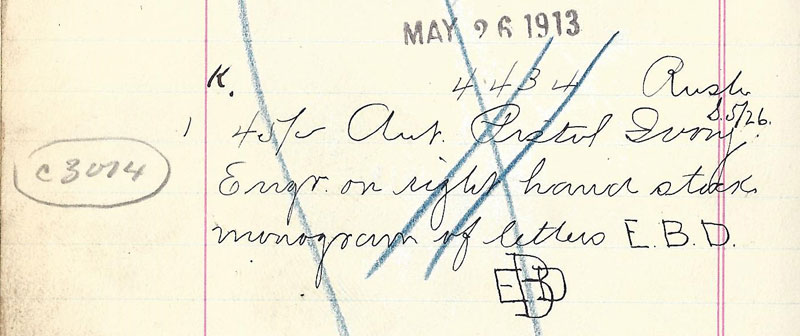 MAY 26 1913
K. 4434 Rush
S. 5/26.
1 45/c Aut. Pistol Ivory.
c3074
Engr. on right hand stock
monogram of letters E.B.D.
EBD